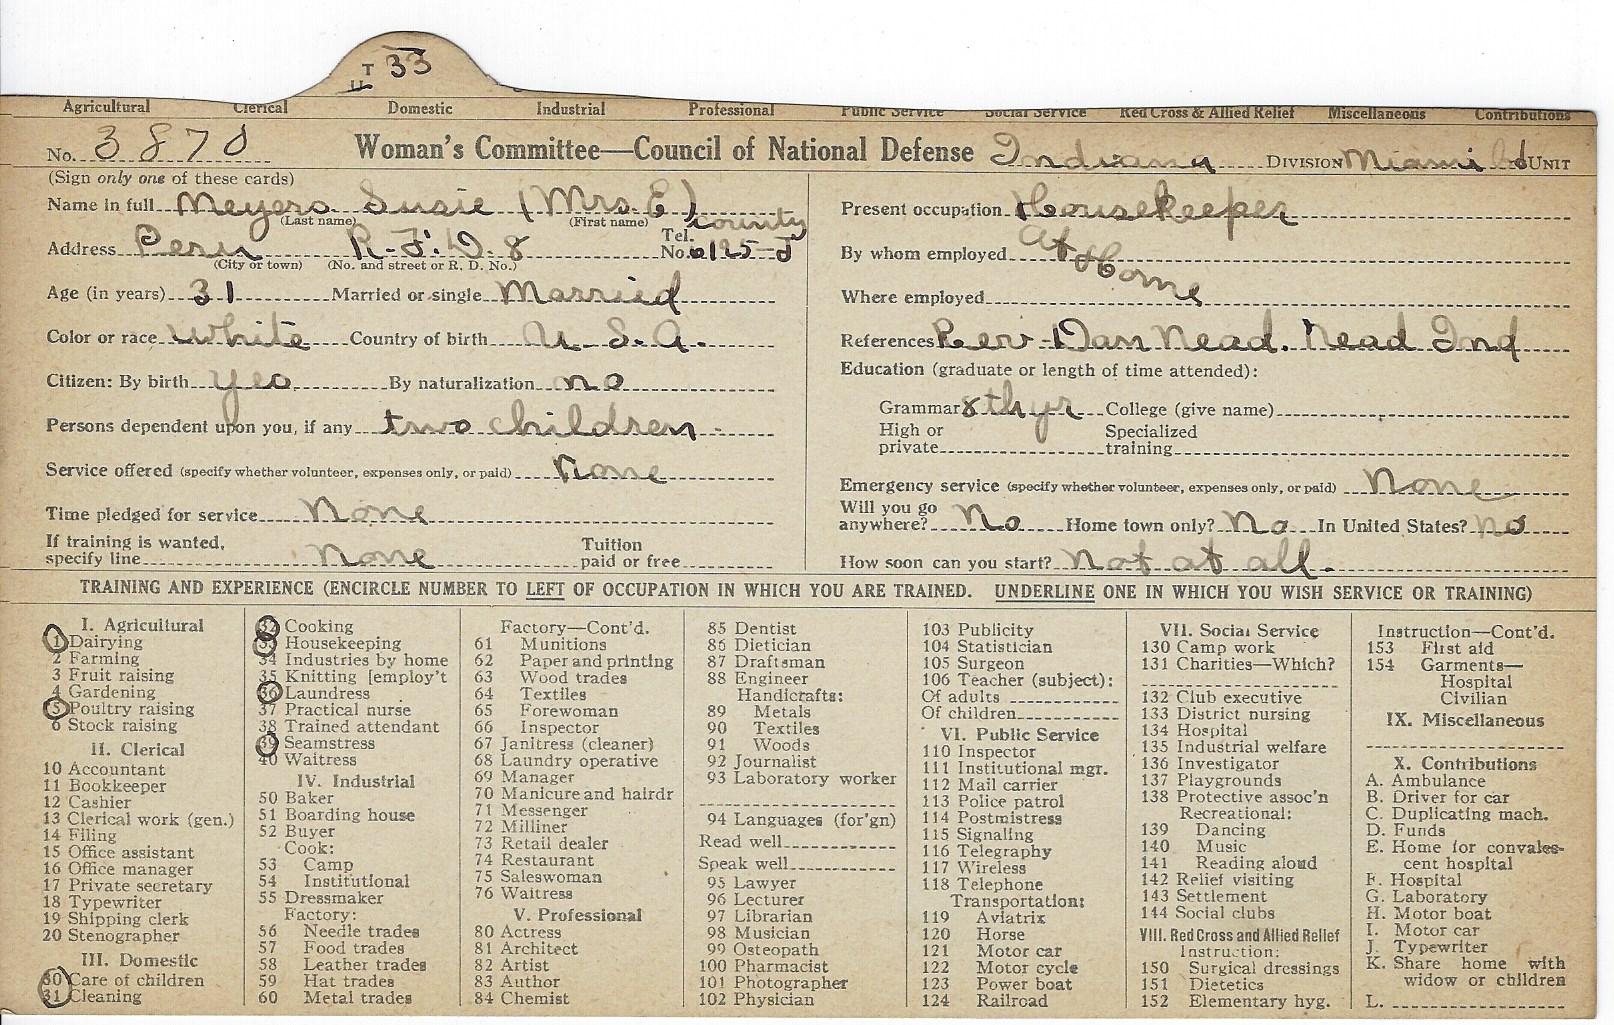 T 33
U
Agricultural Clerical Domestic Industrial Professional Public Service Social Service Red Cross & Allied Relief Miscellaneous Contributions
No. 3870 Woman's Committee—Council of National Defense Indiana Division Miami Unit
(Sign only one of these cards)
Name in full Meyers Susie (Mrs. E)
(Last name) (First name)
county
Address Peru R.F.D. 8 Tel. No. 6125-J
(City or town) (No. and street or R. D. No.)
Age (in years) 31 Married or single Married
Color or race White Country of birth U.S.A.
Citizen: By birth yes By naturalization no
Persons dependent upon you, if any two children
Service offered (specify whether volunteer, expenses only, or paid) None
Time pledged for service None
If training is wanted, specify line None Tuition paid or free
Present occupation Housekeeper
By whom employed At Home
Where employed
References Rev. Dan Nead. Nead Ind
Education (graduate or length of time attended):
Grammar 8th yr College (give name)
High or private Specialized training
Emergency service (specify whether volunteer, expenses only, or paid) None
Will you go anywhere? No Home town only? No In United States? no
How soon can you start? Not at all.
TRAINING AND EXPERIENCE (ENCIRCLE NUMBER TO LEFT OF OCCUPATION IN WHICH YOU ARE TRAINED. UNDERLINE ONE IN WHICH YOU WISH SERVICE OR TRAINING)
I. Agricultural
1 Dairying
2 Farming
3 Fruit raising
4 Gardening
5 Poultry raising
6 Stock raising
II. Clerical
10 Accountant
11 Bookkeeper
12 Cashier
13 Clerical work (gen.)
14 Filing
15 Office assistant
16 Office manager
17 Private secretary
18 Typewriter
19 Shipping clerk
20 Stenographer
III. Domestic
30 Care of children
31 Cleaning
32 Cooking
33 Housekeeping
34 Industries by home
35 Knitting [employ't
36 Laundress
37 Practical nurse
38 Trained attendant
39 Seamstress
40 Waitress
IV. Industrial
50 Baker
51 Boarding house
52 Buyer
Cook:
53 Camp
54 Institutional
55 Dressmaker
Factory:
56 Needle trades
57 Food trades
58 Leather trades
59 Hat trades
60 Metal trades
Factory—Cont'd.
61 Munitions
62 Paper and printing
63 Wood trades
64 Textiles
65 Forewoman
66 Inspector
67 Janitress (cleaner)
68 Laundry operative
69 Manager
70 Manicure and hairdr
71 Messenger
72 Milliner
73 Retail dealer
74 Restaurant
75 Saleswoman
76 Waitress
V. Professional
80 Actress
81 Architect
82 Artist
83 Author
84 Chemist
85 Dentist
86 Dietician
87 Draftsman
88 Engineer
Handicrafts:
89 Metals
90 Textiles
91 Woods
92 Journalist
93 Laboratory worker
94 Languages (for'gn)
Read well
Speak well
95 Lawyer
96 Lecturer
97 Librarian
98 Musician
99 Osteopath
100 Pharmacist
101 Photographer
102 Physician
103 Publicity
104 Statistician
105 Surgeon
106 Teacher (subject):
Of adults
Of children
VI. Public Service
110 Inspector
111 Institutional mgr.
112 Mail carrier
113 Police patrol
114 Postmistress
115 Signaling
116 Telegraphy
117 Wireless
118 Telephone
Transportation:
119 Aviatrix
120 Horse
121 Motor car
122 Motor cycle
123 Power boat
124 Railroad
VII. Social Service
130 Camp work
131 Charities—Which?
132 Club executive
133 District nursing
134 Hospital
135 Industrial welfare
136 Investigator
137 Playgrounds
138 Protective assoc'n
Recreational:
139 Dancing
140 Music
141 Reading aloud
142 Relief visiting
143 Settlement
144 Social clubs
VIII. Red Cross and Allied Relief
Instruction:
150 Surgical dressings
151 Dietetics
152 Elementary hyg.
Instruction—Cont'd.
153 First aid
154 Garments—
Hospital
Civilian
IX. Miscellaneous
X. Contributions
A. Ambulance
B. Driver for car
C. Duplicating mach.
D. Funds
E. Home for convales-
cent hospital
F. Hospital
G. Laboratory
H. Motor boat
I. Motor car
J. Typewriter
K. Share home with
widow or children
L.